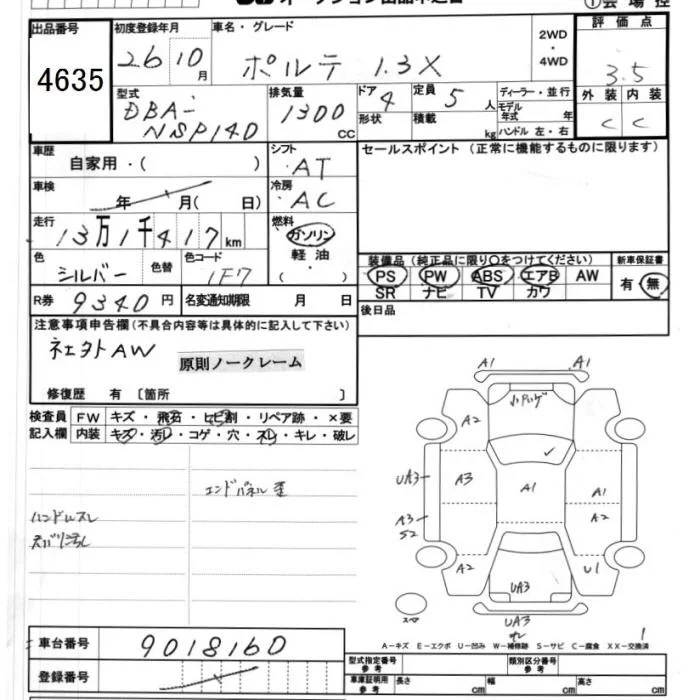 出品番号 初度登録年月 車名・グレード 2WD・4WD 評価点
4635 26 10月 ポルテ 1.3X 3.5
型式 排気量 ドア 4 定員 5人 ディーラー・並行 外装 内装
DBA-NSP140 1300 CC 形状 積載 kg モデル年式 年 ハンドル 左・右 C C
車歴 自家用・( ) シフト AT セールスポイント (正常に機能するものに限ります)
車検 年 月( 日) 冷房 AC
走行 13万1千417km 燃料 ガソリン 軽油・( )
色 シルバー 色替 色コード 1F7 装備品 (純正品に限り○をつけてください) 新車保証書
PS PW ABS エアB AW 有・無
SR ナビ TV カワ
R券 9340円 名変通知期限 月 日 後日品
注意事項申告欄 (不具合内容等は具体的に記入して下さい)
AW 原則ノークレーム
修復歴 有 〔箇所 〕
検査員 FW キズ・飛石・ヒビ割・リペア跡・×要
記入欄 内装 キズ・汚レ・コゲ・穴・スレ・キレ・破レ
エンドパネル
ハンドルスレ
A1 A1
A2
UA3 A3 A1 A1
A3 A2
S2
A2 U1
UA3
UA3
スペア
A-キズ E-エクボ U-凹み W-補修跡 S-サビ C-腐食 XX-交換済
車台番号 9018160
登録番号
型式指定番号 参考 類別区分番号 参考
車庫証明用 参考 長さ cm 幅 cm 高さ cm